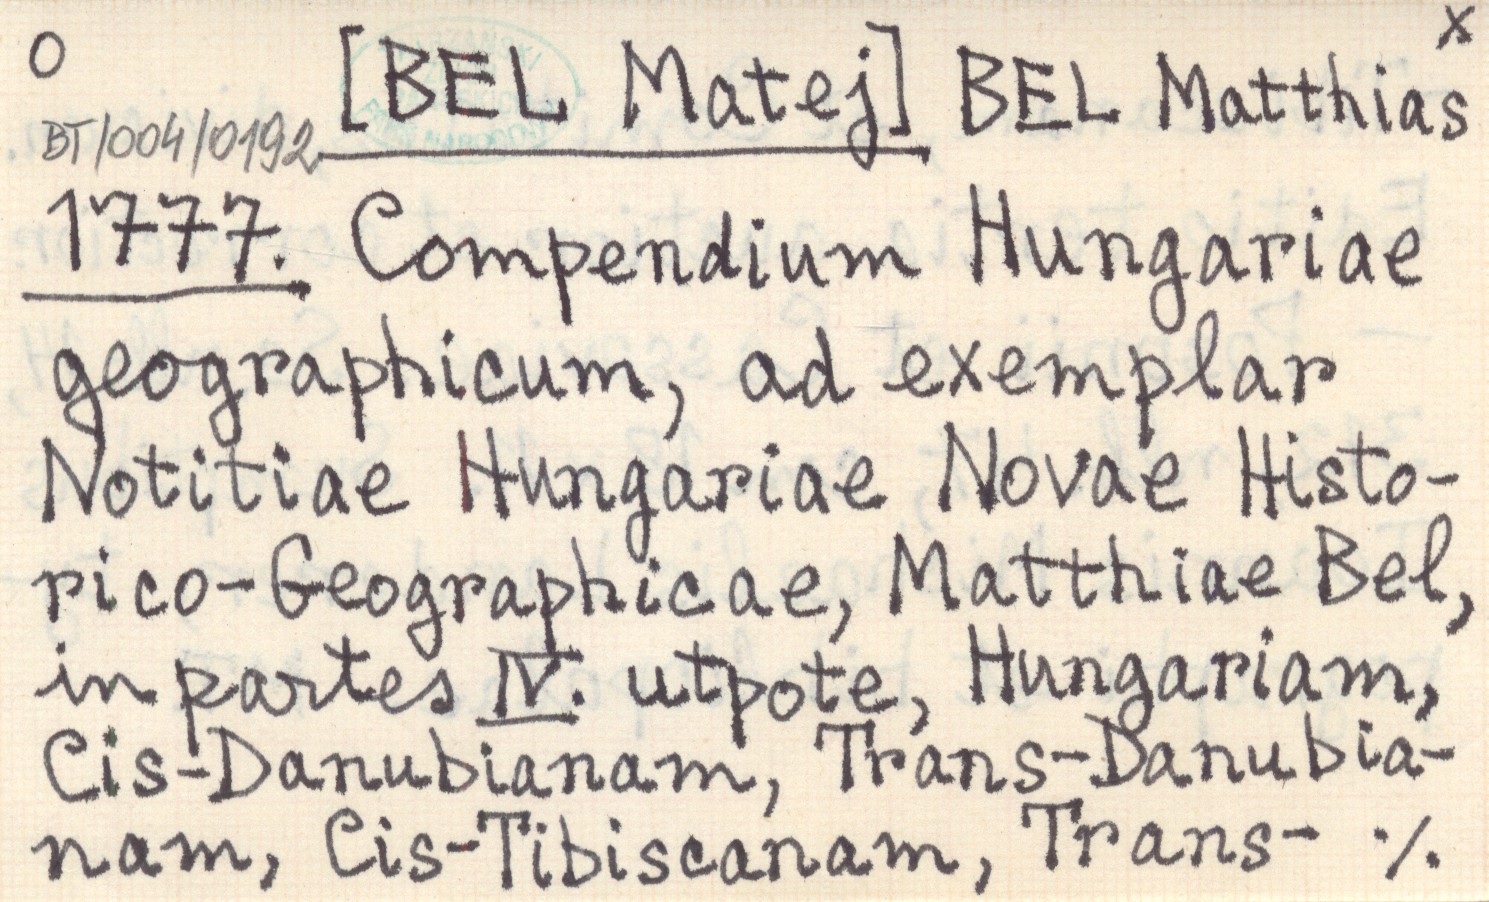 O [BEL Matej] BEL Matthias x
BT/004/0192
1777. Compendium Hungariae
geographicum, ad exemplar
Notitiae Hungariae Novae Histo-
rico-Geographicae, Matthiae Bel,
in partes IV. utpote, Hungariam,
Cis-Danubianam, Trans-Danubia-
nam, Cis-Tibiscanam, Trans- ·/.